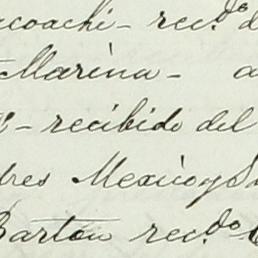 acoachi - rec.do d
Marina - a
- recibido del
dres Mexico y Sa
Barton rec.do